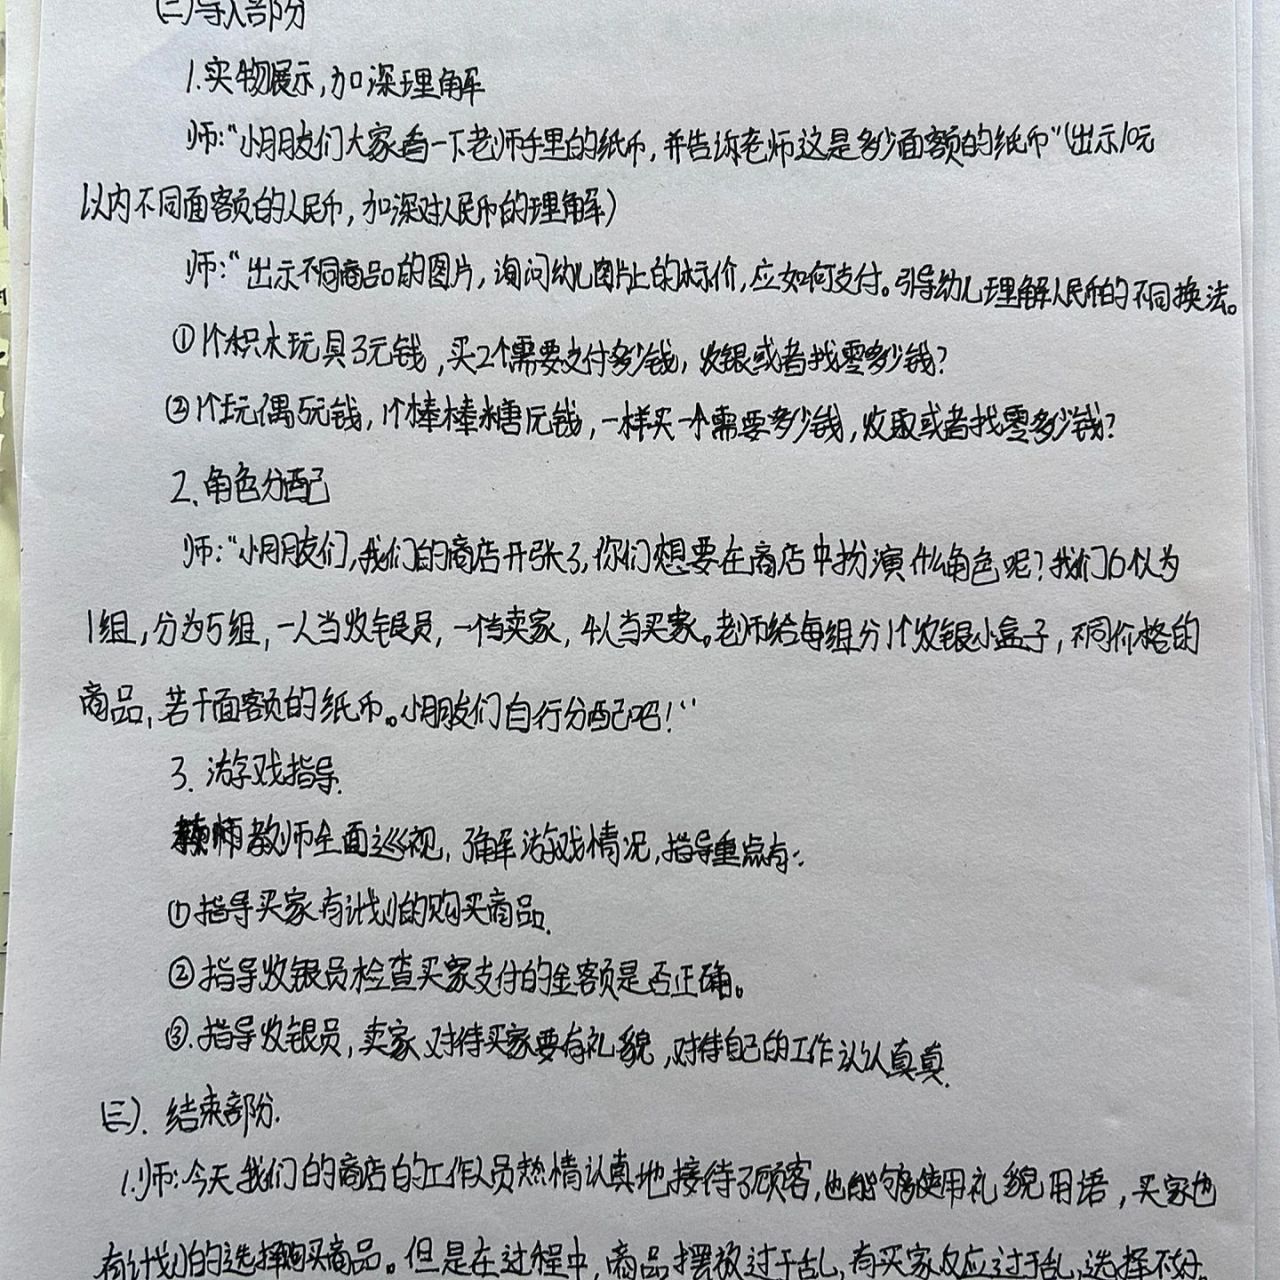 (二)导入部分
1.实物展示,加深理解
师:“小朋友们大家看一下老师手里的纸币,并告诉老师这是多少面额的纸币”(出示10元
以内不同面额的人民币,加深对人民币的理解)
师:“出示不同商品的图片,询问幼儿图片上的标价,应如何支付。引导幼儿理解人民币的不同换法。
①1个积木玩具3元钱,买2个需要支付多少钱,收银或者找零多少钱?
②1个玩偶5元钱,1个棒棒糖1元钱,一样买一个需要多少钱,收取或者找零多少钱?
2.角色分配
师:“小朋友们,我们的商店开张了,你们想要在商店中扮演什么角色呢?我们6个人为
1组,分为5组,一人当收银员,一个当卖家,4人当买家。老师给每组分1个收银小盒子,不同价格的
商品,若干面额的纸币。小朋友们自行分配吧!”
3.游戏指导.
教师全面巡视,了解游戏情况,指导重点有:
①指导买家有计划的购买商品.
②指导收银员检查买家支付的金额是否正确。
③.指导收银员,卖家对待买家要有礼貌,对待自己的工作认认真真.
(三).结束部份.
1.师:今天我们的商店的工作人员热情认真地接待了顾客,也能够使用礼貌用语,买家也
有计划的选择购买商品。但是在过程中,商品摆放过于乱,有买家反应过于乱,选择不好